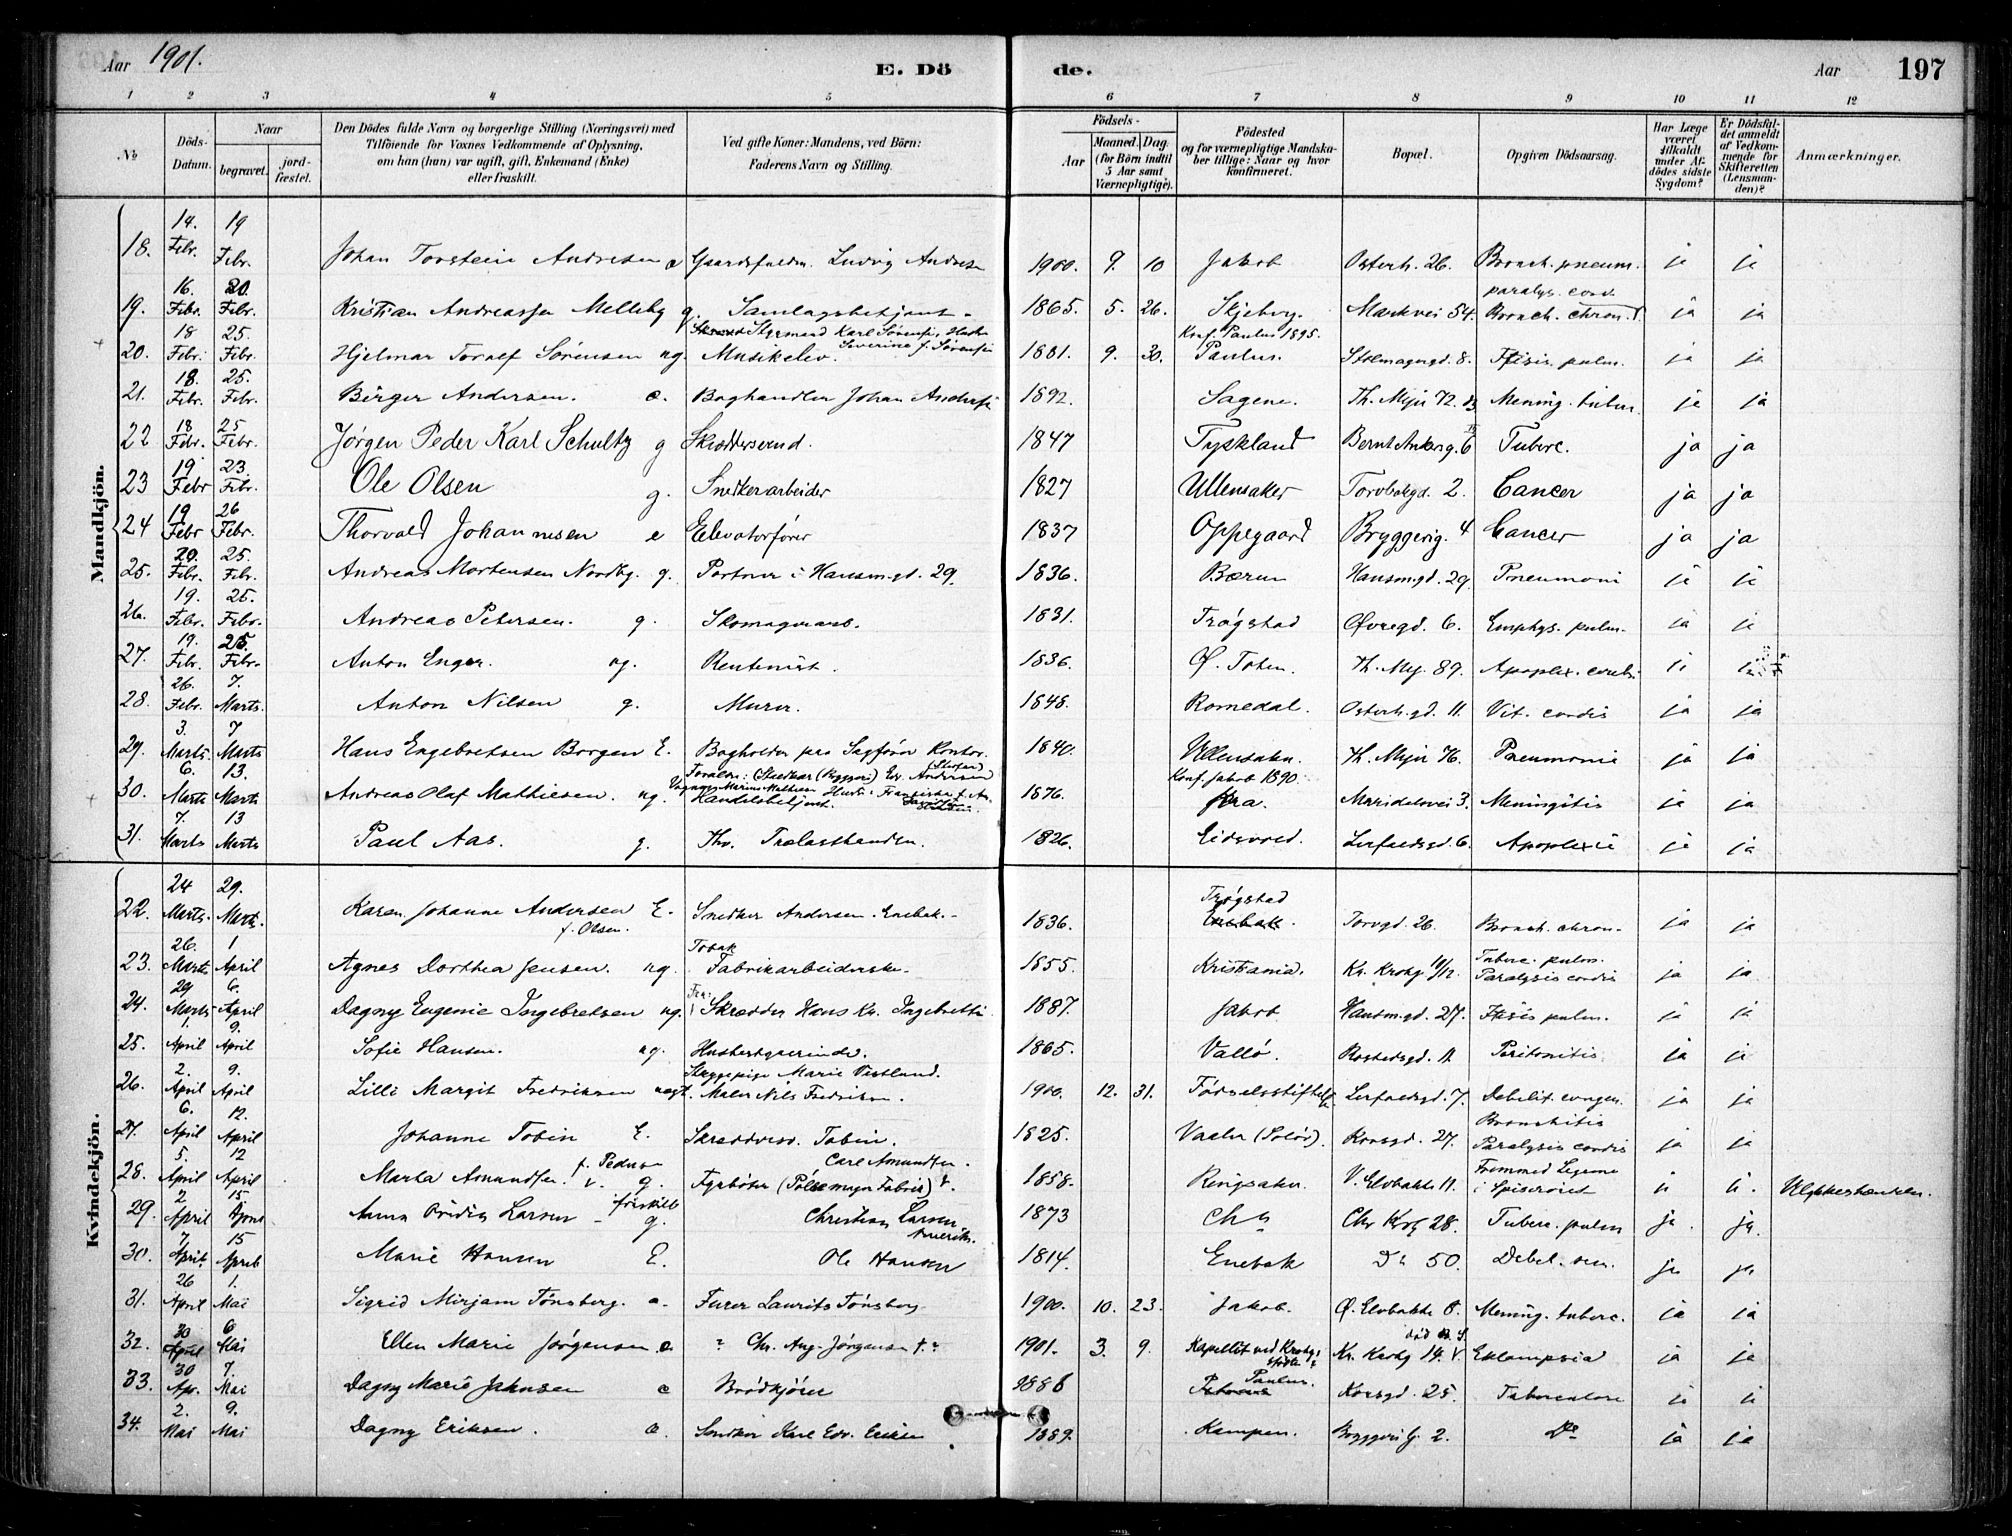 Aar 1901. E. Dö de. Aar 197
1 2 3 4 5 6 7 8 9 10 11 12
№ Döds-Datum. Naar begravet. jord-fæstet. Den Dödes fulde Navn og borgerlige Stilling (Næringsvei) med Tilföiende for Voxnes Vedkommende af Oplysning, om han (hun) var ugift, gift, Enkemand (Enke) eller fraskilt. Ved gifte Koner: Mandens, ved Börn: Faderens Navn og Stilling. Födsels- Aar Maaned. Dag. (for Börn indtil 5 Aar samt Værnepligtige). Födested og for værnepligtige Mandskaber tillige: Naar og hvor konfirmeret. Bopæl. Opgiven Dödsaarsag. Har Læge været tilkaldt under Afdödes sidste Sygdom? Er Dödsfaldet anmeldt af Vedkommende for Skifteretten (Lensmanden)? Anmærkninger.
Mandkjön.
18. 14. Febr. 19 Febr. Johan Torstein Andresen e Gaardsfuldm. Ludvig Andresen 1900. 9. 10 Jakob Osterh. 26. Bronch. pneum. ja ja
19. 16. Febr. 20. Febr. Kristian Andreassen Melleby g. Samlagsbetjent 1865. 5. 26. Skjeberg. Markvei 54. paralys. cord. Bronch. chron. ja ja
20. 18 Febr. 25. Febr. Hjelmar Toralf Sørensen ug. Styrmand Karl Sørensen, Severine f. Sørensen Musikelev. 1881. 9. 30. Konf. Paulus 1895. Paulus. Stolmagergd. 8. Ftisis pulm. ja ja
21. 18. Febr. 25. Febr. Birger Andersen. e. Boghandler Johan Andersen 1892. Sagene. Th. Myer 72. Mening. tuberc. ja ja
22 18 Febr. 25 Febr. Jørgen Peder Karl Schultz g Skræddersvend. 1847 Tyskland Bernt Ankersg. 6 Tuberc. ja ja
23 19 Febr 23. Febr. Ole Olsen g. Snedkerarbeider 1827 Ullensaker Torvbakgd. 2. Cancer ja ja
24 19 Febr 26 Febr. Thorvald Johannesen e Elevatorfører 1837 Oppegaard Bryggerig. 4 Cancer ja ja
25. 20. Febr. 25. Febr. Andreas Mortensen Nordbg. g. Portner i Hausm.gd. 29. 1836. Bærum Hausm.gd. 29. Pneumoni ja ja
26. 19. Febr. 25. Febr. Andreas Petersen. g. Skomagerarb. 1831. Trøgstad Øvregd. 6. Emphys. pulm. ja ja
27. 19. Febr. 25 Febr. Anton Enger. ug. Rentenist. 1836. Ø. Toten. Th. Mey. 89. Apoplex. cerebri ja
28. 26. Febr. 7. Marts. Anton Nilsen g. Murer. 1848. Romedal. Osterh.gd. 11. Vit. cordis ja ja
29. 3. Marts 7 Marts Hans Engebretsen Borgen E. Bogholder paa Sagfører Kontor. 1840. Ullensaker. Th. Myer 76. Pneumonie ja ja
30. 6. Marts 13. Marts Andreas Olaf Mathiesen. ug. Handelsbetjent. 1876. Konf. Jakob 1890. Kra. Maridalsvei 3. Meningitis ja ja
31. 7. Marts 13 Marts Paul Aas. g. Fhv. Trælasthandler. 1826. Eidsvold. Lerfaldsgd. 6. Apoplexie ja ja
Kvindekjön.
22. 24 Marts. 29. Marts. Karen Johanne Andersen f. Olsen. E. Snedker Andersen. Enebak. 1836. Trøgstad Enebak. Torvgd. 26. Bronch. chron. ja ja
23. 26. Marts 1 April Agnes Dorthea Jensen. ug. Tobak Fabrikarbeiderske. 1855. Kristiania. Kr. Krohg 10/12. Tuberc. pulm. Paralysis cordis ja ja
24. 29 Marts 6. April Dagny Eugenie Ingebretsen ug. Far: Skrædder Hans Kr. Ingebretsen 1887. Jakob Hausm.gd. 27. Ftisis pulm. ja ja
25. 1. April 9. April Sofie Hansen. ug. Husbestyrerinde. 1865. Vallö. Rostedsgd. 11. Peritonitis ja ja
26. 2. April 9. April Lilli Margit Fredriksen uegt. Strygepige Marie Vestlund. Maler Nils Fredriksen. 1900. 12. 31. Fødselsstiftelsen Lerfaldsgd. 7. Debilit. congen. ja ja
27. 6. April 12. April Johanne Tobin E. Skræddersv. Tobin. 1825. Vaaler (Solør). Korsgd. 27. Bronchitis Paralysis cordis ja ja
28. 5. April 12 April Marta Amundsen. f. Pedersen g. Carl Amundsen. Fyrbøter (Pølsemager Fabrik) 1858. Ringsaker. V. Elvbakke 11. Fremmed Legeme i Spiserøret ja ja. Ulykkeshændelse.
29. 2 April 15 April Anna Bridis Larsen fraskilt g. Christian Larsen. Amerika. 1873 Cha Chr Krog 28. Tuberc. pulm ja. ja.
30. 7. April. 15 April Marie Hansen E. Ole Hansen 1814. Enebak Do 50. Debil. sen. ja ja
31. 26 April 1. Mai Sigrid Mirjam Tönsberg. e. Furer Laurits Tönsberg 1900. 10. 23. Jakob. Ø. Elvbakke 8. Mening. tuberc. ja ja
32. 30 April 6 Mai Ellen Marie Jørgensen e. " Chr. Aug. Jørgensen 1901. 3. 9. Kapellet ved Krohgs støtte Kr. Krohg 14. Eklampsia ja ja
33. 30 Ap. 7. Mai Dagny Marie Jahnsen e Brødkjører 1886 Paulus. Korsgd. 25. Tuberculose ja ja
34. 2. Mai 9. Mai Dagny Eriksen. e. Snedker Karl Edv. Eriksen 1889. Kampen. Bryggerig. 2. Do ja ja